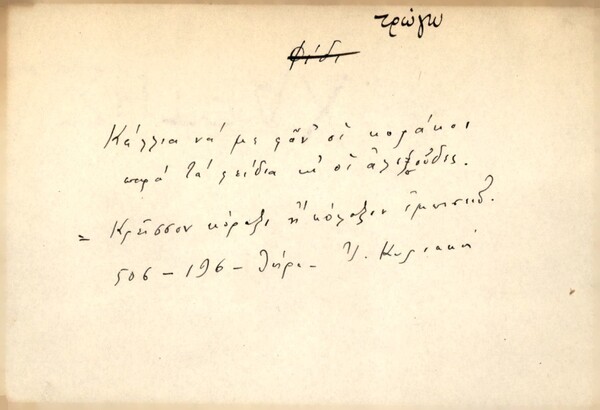 τρώγω
φίδι
Κάλλια νά με φᾶν' οἱ κοράκοι
παρά τά φείδια κ' οἱ ἀλεποῦδες.
= Κρεῖσσον κόραξι ἤ κόλαξιν
506 - 196 - Θήρα - Κυριακή